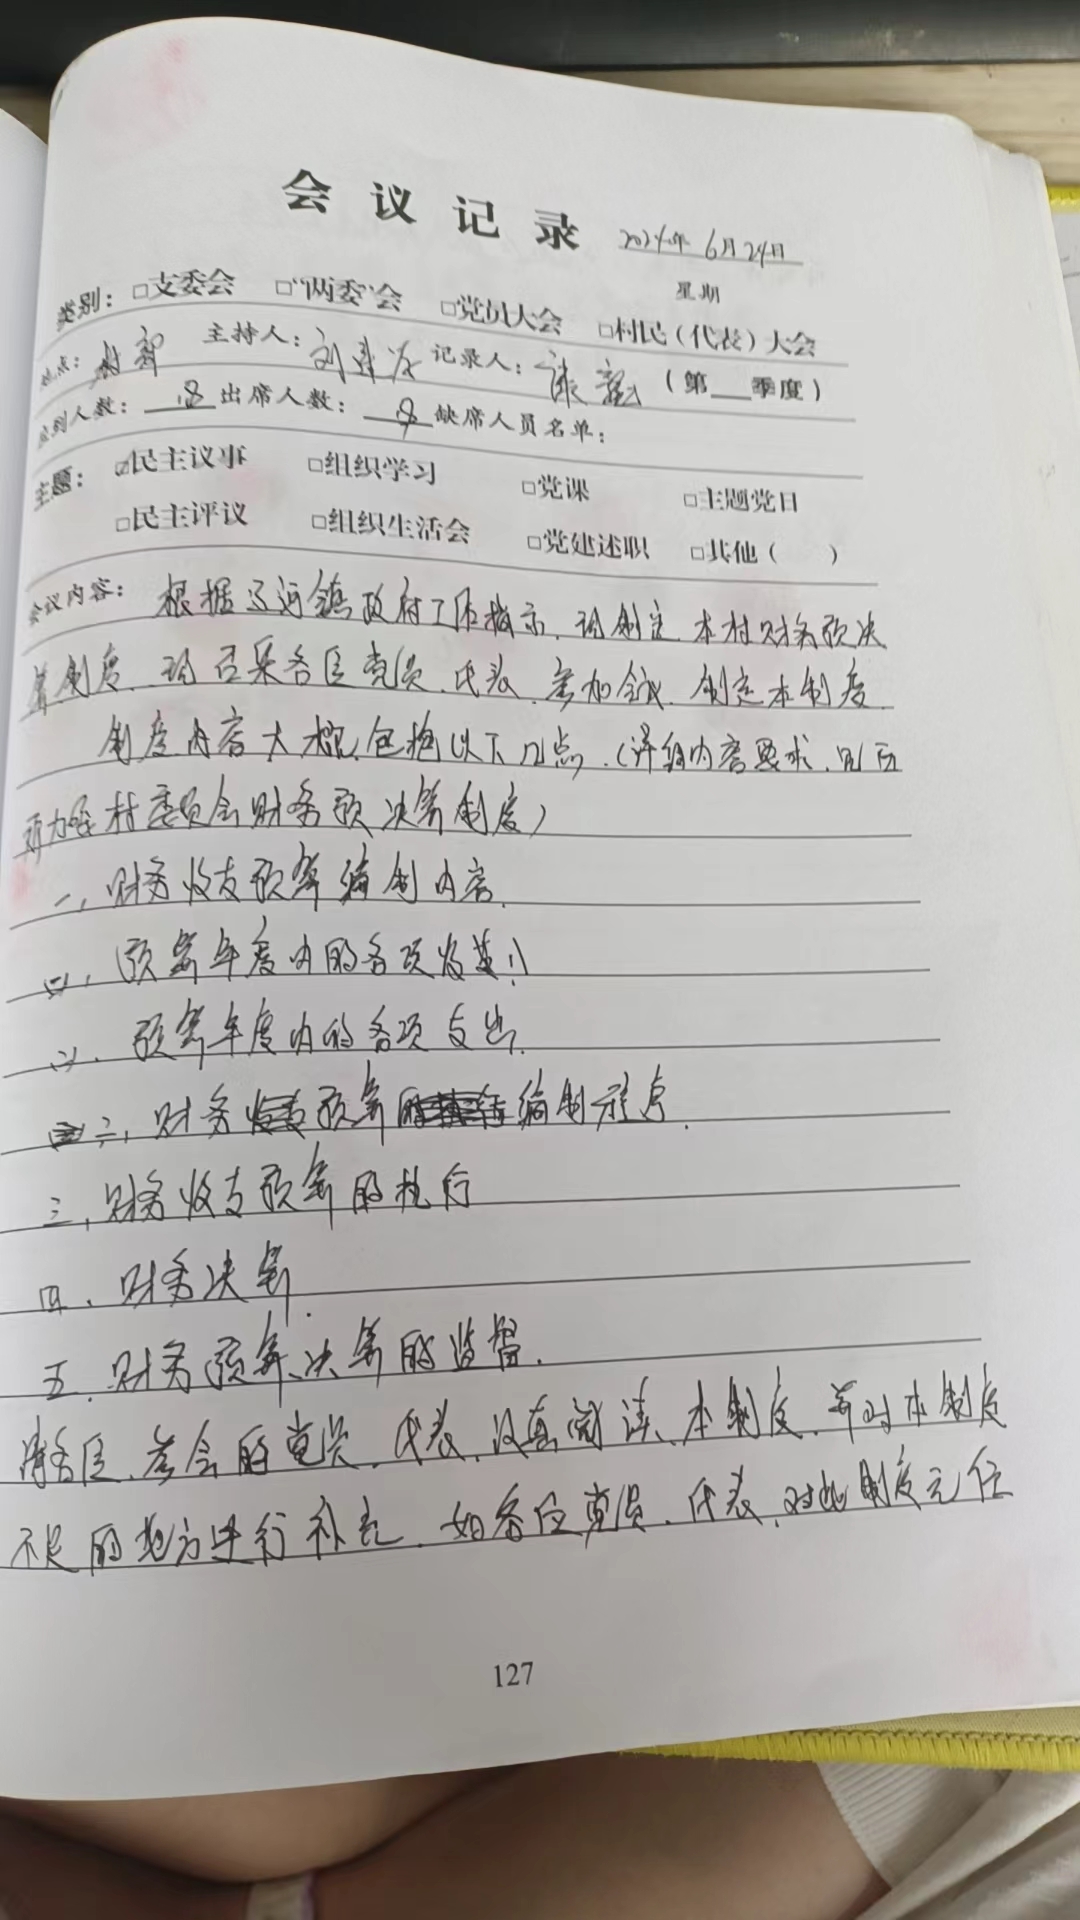 会议记录 2024年6月24日
星期
类别：□支委会 □“两委”会 □党员大会 □村民（代表）大会
地点：村部 主持人：刘 记录人：（第 季度）
应到人数：18 出席人数：18 缺席人员名单：
主题：☑民主议事 □组织学习 □党课 □主题党日
□民主评议 □组织生活会 □党建述职 □其他（ ）
会议内容：根据 河镇政府工作指示，现制定本村财务预决
算制度，现召集各位党员、代表，参加会议，制定本制度，
制度内容大概包括以下几点，（详细内容要求，见
村委员会财务预决算制度）
一、财务收支预算编制内容，
(一)、预算年度内的各项收益，
(二)、预算年度内的各项支出，
二、财务预算编制程序，
三、财务收支预算的执行
四、财务决算，
五、财务预算、决算的监督，
请各位，参会的党员，代表，认真阅读，本制度，并对本制度
不足的地方进行补充，如各位党员，代表，对此制度无任
127